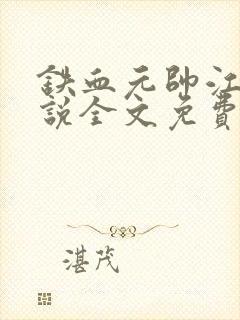 鉄血元帥江
說全文免費
湛茂